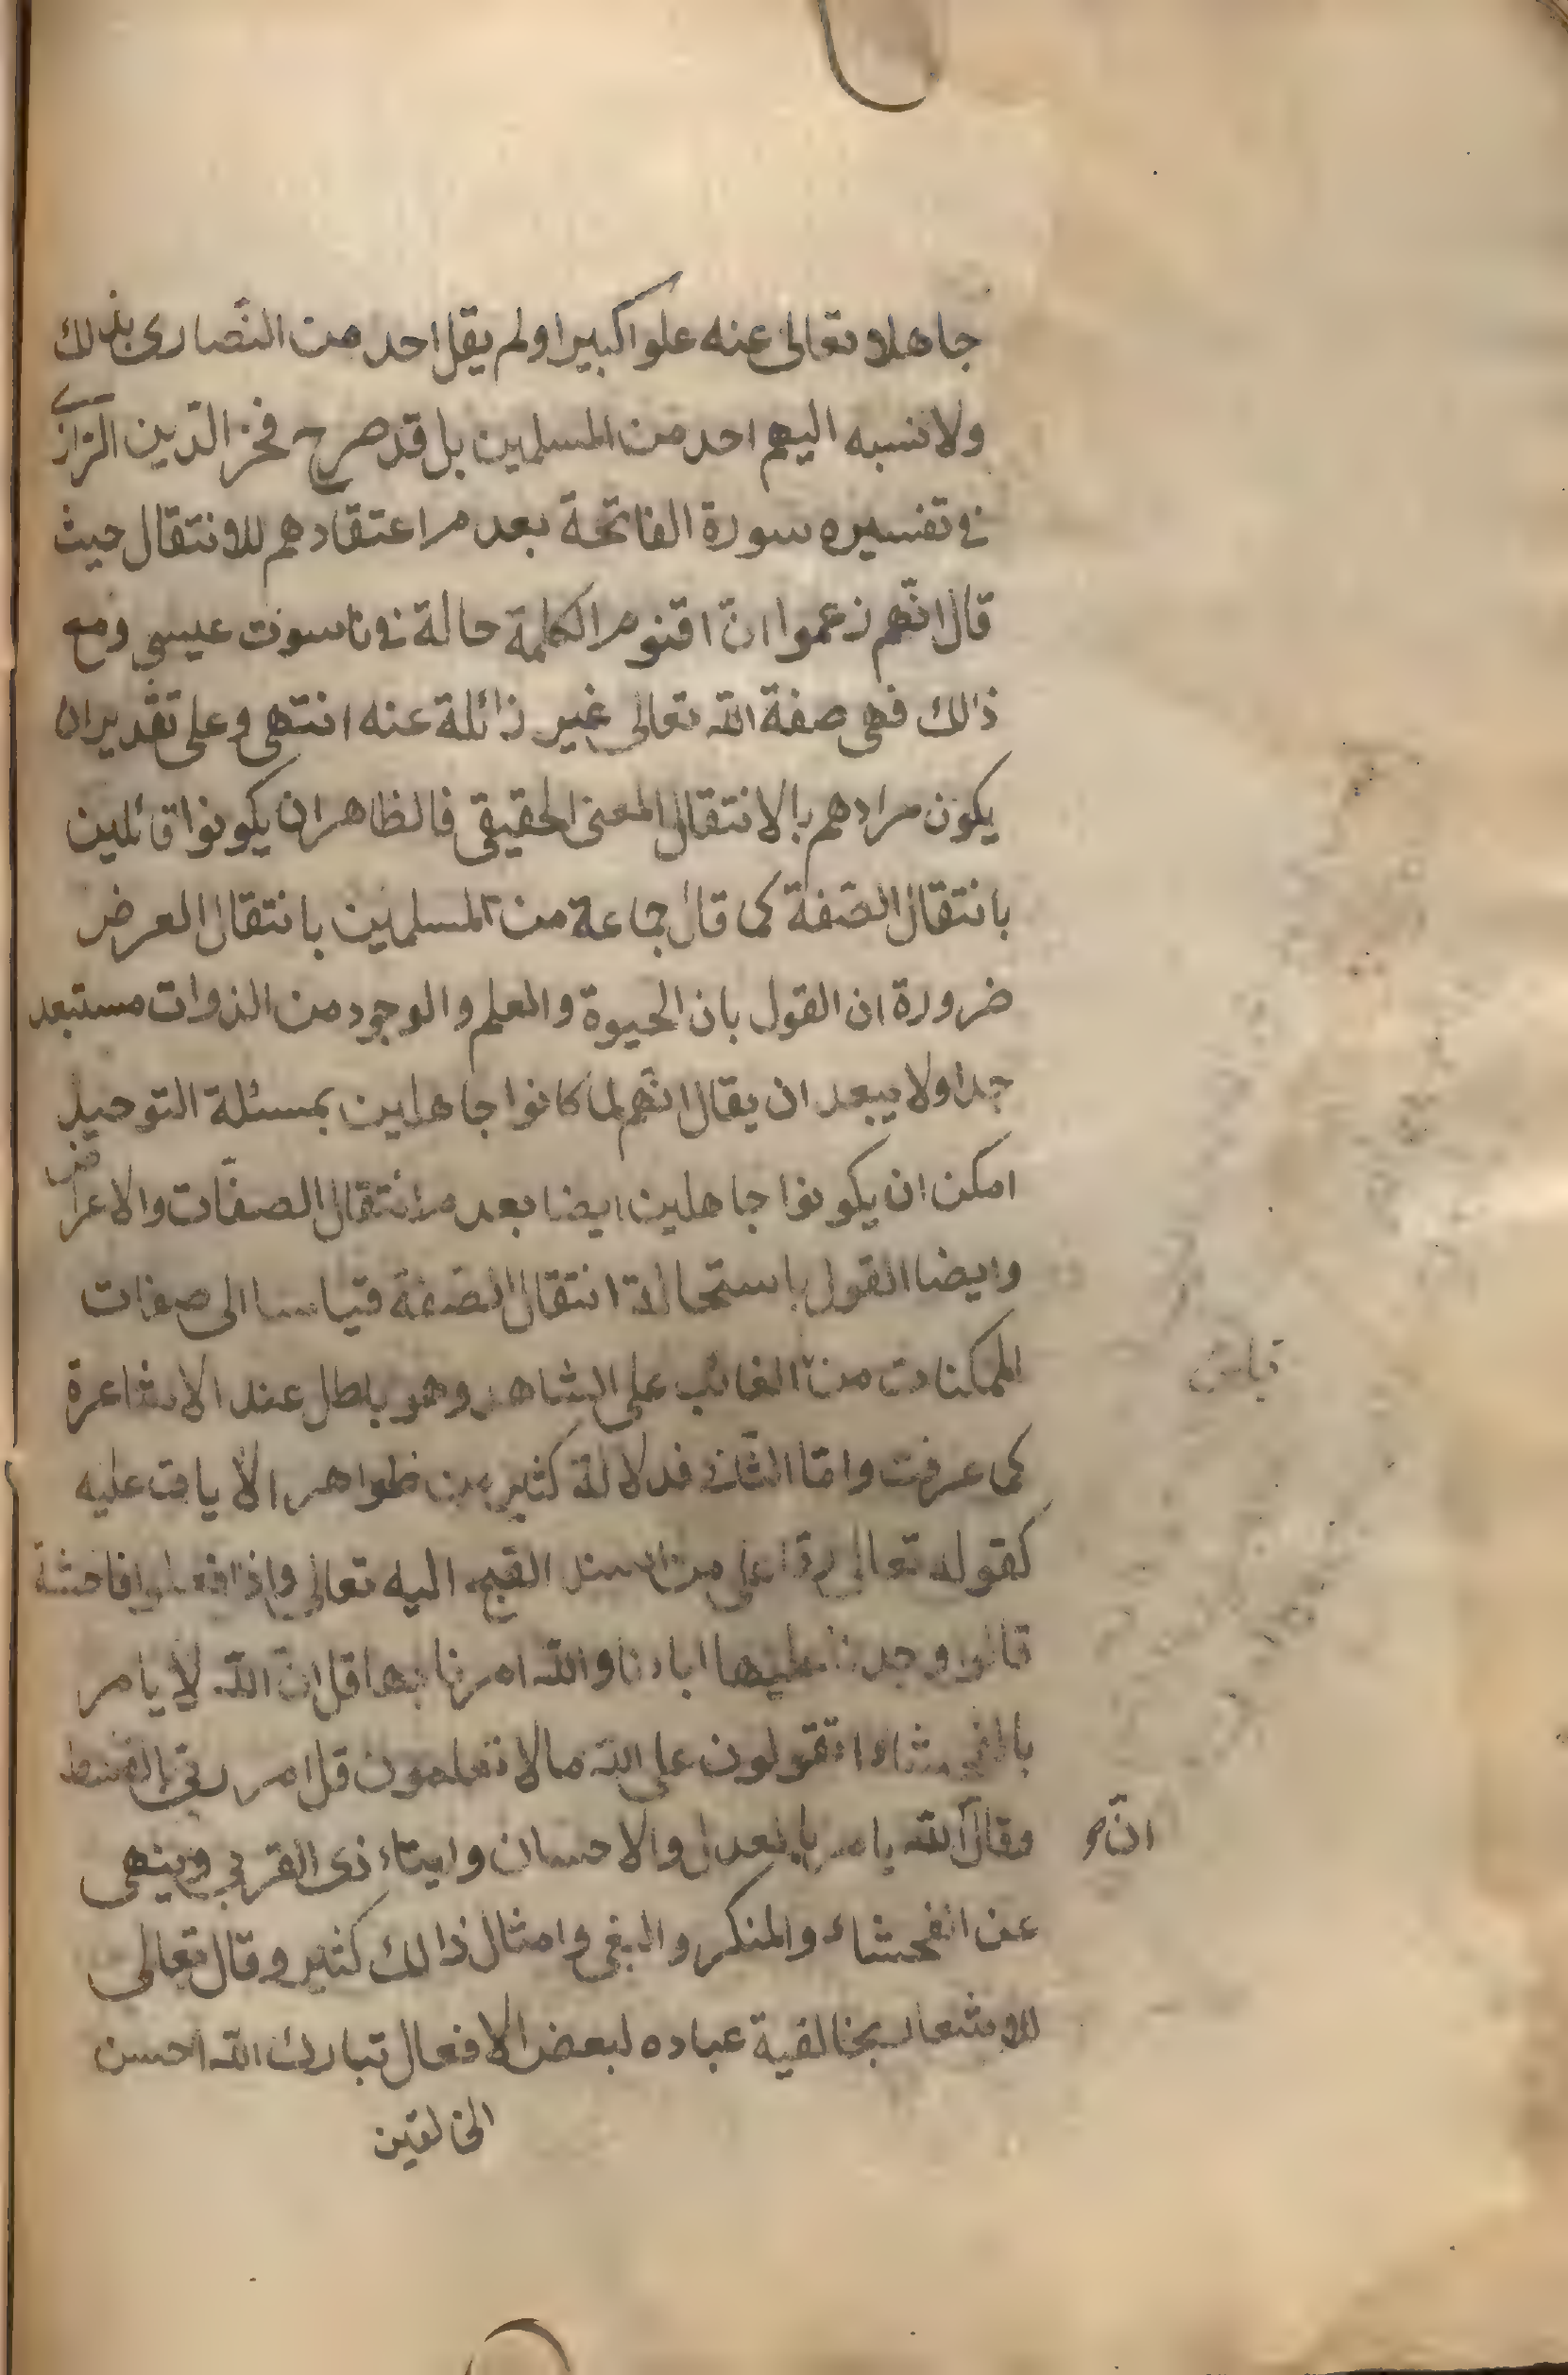 جاهلا وتعالى عنه علوا كبيرا ولم يقل احد من النّصارى بذلك
ولا نسبه اليهم احد من المسلمين بل قد صرح فخر الدّين الرّازى
فى تفسيره سورة الفاتحة بعدم اعتقادهم للانتقال حيث
قال انّهم زعموا انّ اقنوم الكلمة حالة فى ناسوت عيسى ومع
ذالك فهى صفة الله تعالى غير زائلة عنه انتهى وعلى تقدير ان
يكون مرادهم بالانتقال المعنى الحقيقى فالظاهر ان يكونوا قائلين
بانتقال الصّفة كما قال جماعة من المسلمين بانتقال العرض
ضرورة ان القول بان الحيوة والعلم والوجود من الذوات مستبعد
جدا ولا يبعد ان يقال انّهم لما كانوا جاهلين بمسئلة التوحيد
امكن ان يكونوا جاهلين ايضا بعدم انتقال الصفات والاعراض
وايضا القول باستحالة انتقال الصّفة قياسا الى صفات
الممكنات من الغائب على الشاهد وهو باطل عند الاشاعرة
قياس
كما عرفت وامّا الثّانى فدلالة كثير من ظواهر الأيات عليه
كقوله تعالى ردّا على من اسند القبح اليه تعالى واذا فعلوا فاحشة
قالوا وجدنا عليها اباءنا والله امرنا بها قل انّ الله لا يامر
بالفحشاء اتقولون على الله ما لا تعلمون قل امر ربّى بالقسط
وقال الله يامر بالعدل والاحسان وايتاء ذى القربى وينهى
انّ
عن الفحشاء والمنكر والبغى وامثال ذالك كثير وقال تعالى
للاشعار بخالقية عباده لبعض الافعال تبارك الله احسن
الخالقين